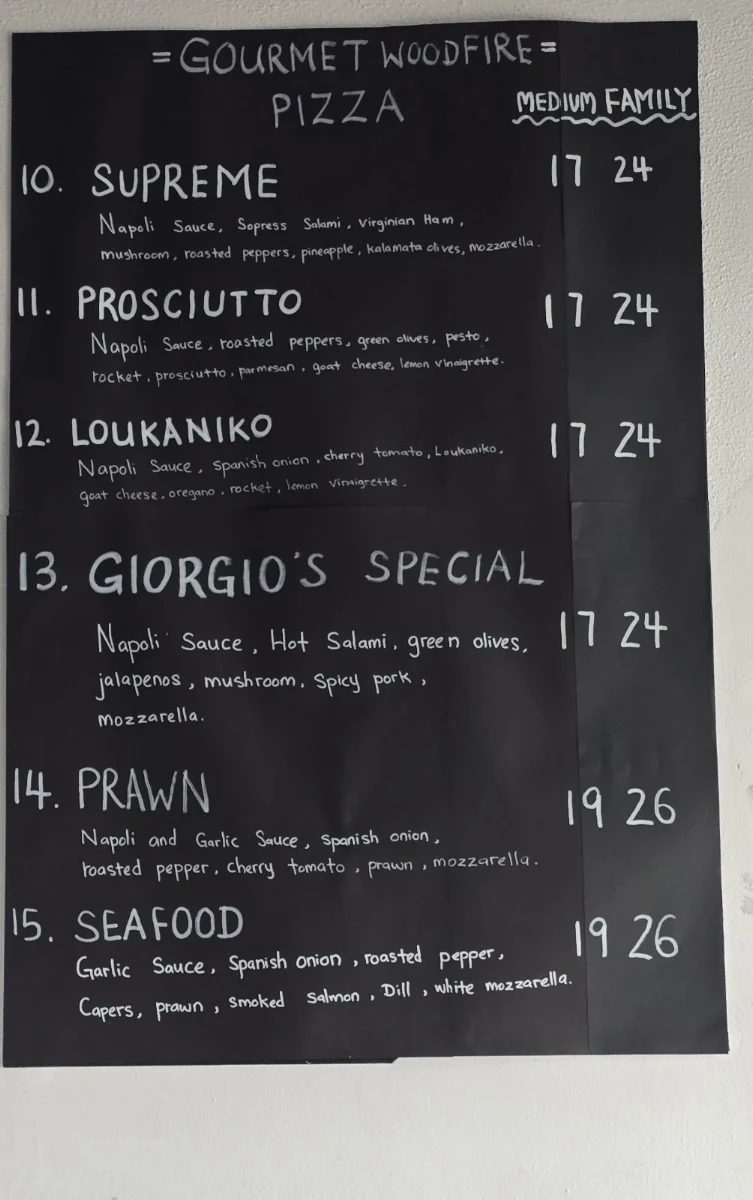 = GOURMET WOODFIRE =
PIZZA
MEDIUM FAMILY
10. SUPREME 17 24
Napoli Sauce, Sopress Salami, Virginian Ham,
mushroom, roasted peppers, pineapple, kalamata olives, mozzarella.
11. PROSCIUTTO 17 24
Napoli Sauce, roasted peppers, green olives, pesto,
rocket, prosciutto, parmesan, goat cheese, lemon vinaigrette.
12. LOUKANIKO 17 24
Napoli Sauce, Spanish onion, cherry tomato, Loukaniko,
goat cheese, oregano, rocket, lemon vinaigrette.
13. GIORGIO'S SPECIAL
17 24
Napoli Sauce, Hot Salami, green olives,
jalapenos, mushroom, Spicy pork,
mozzarella.
14. PRAWN 19 26
Napoli and Garlic Sauce, Spanish onion,
roasted pepper, cherry tomato, prawn, mozzarella.
15. SEAFOOD 19 26
Garlic Sauce, Spanish onion, roasted pepper,
Capers, prawn, smoked salmon, Dill, white mozzarella.